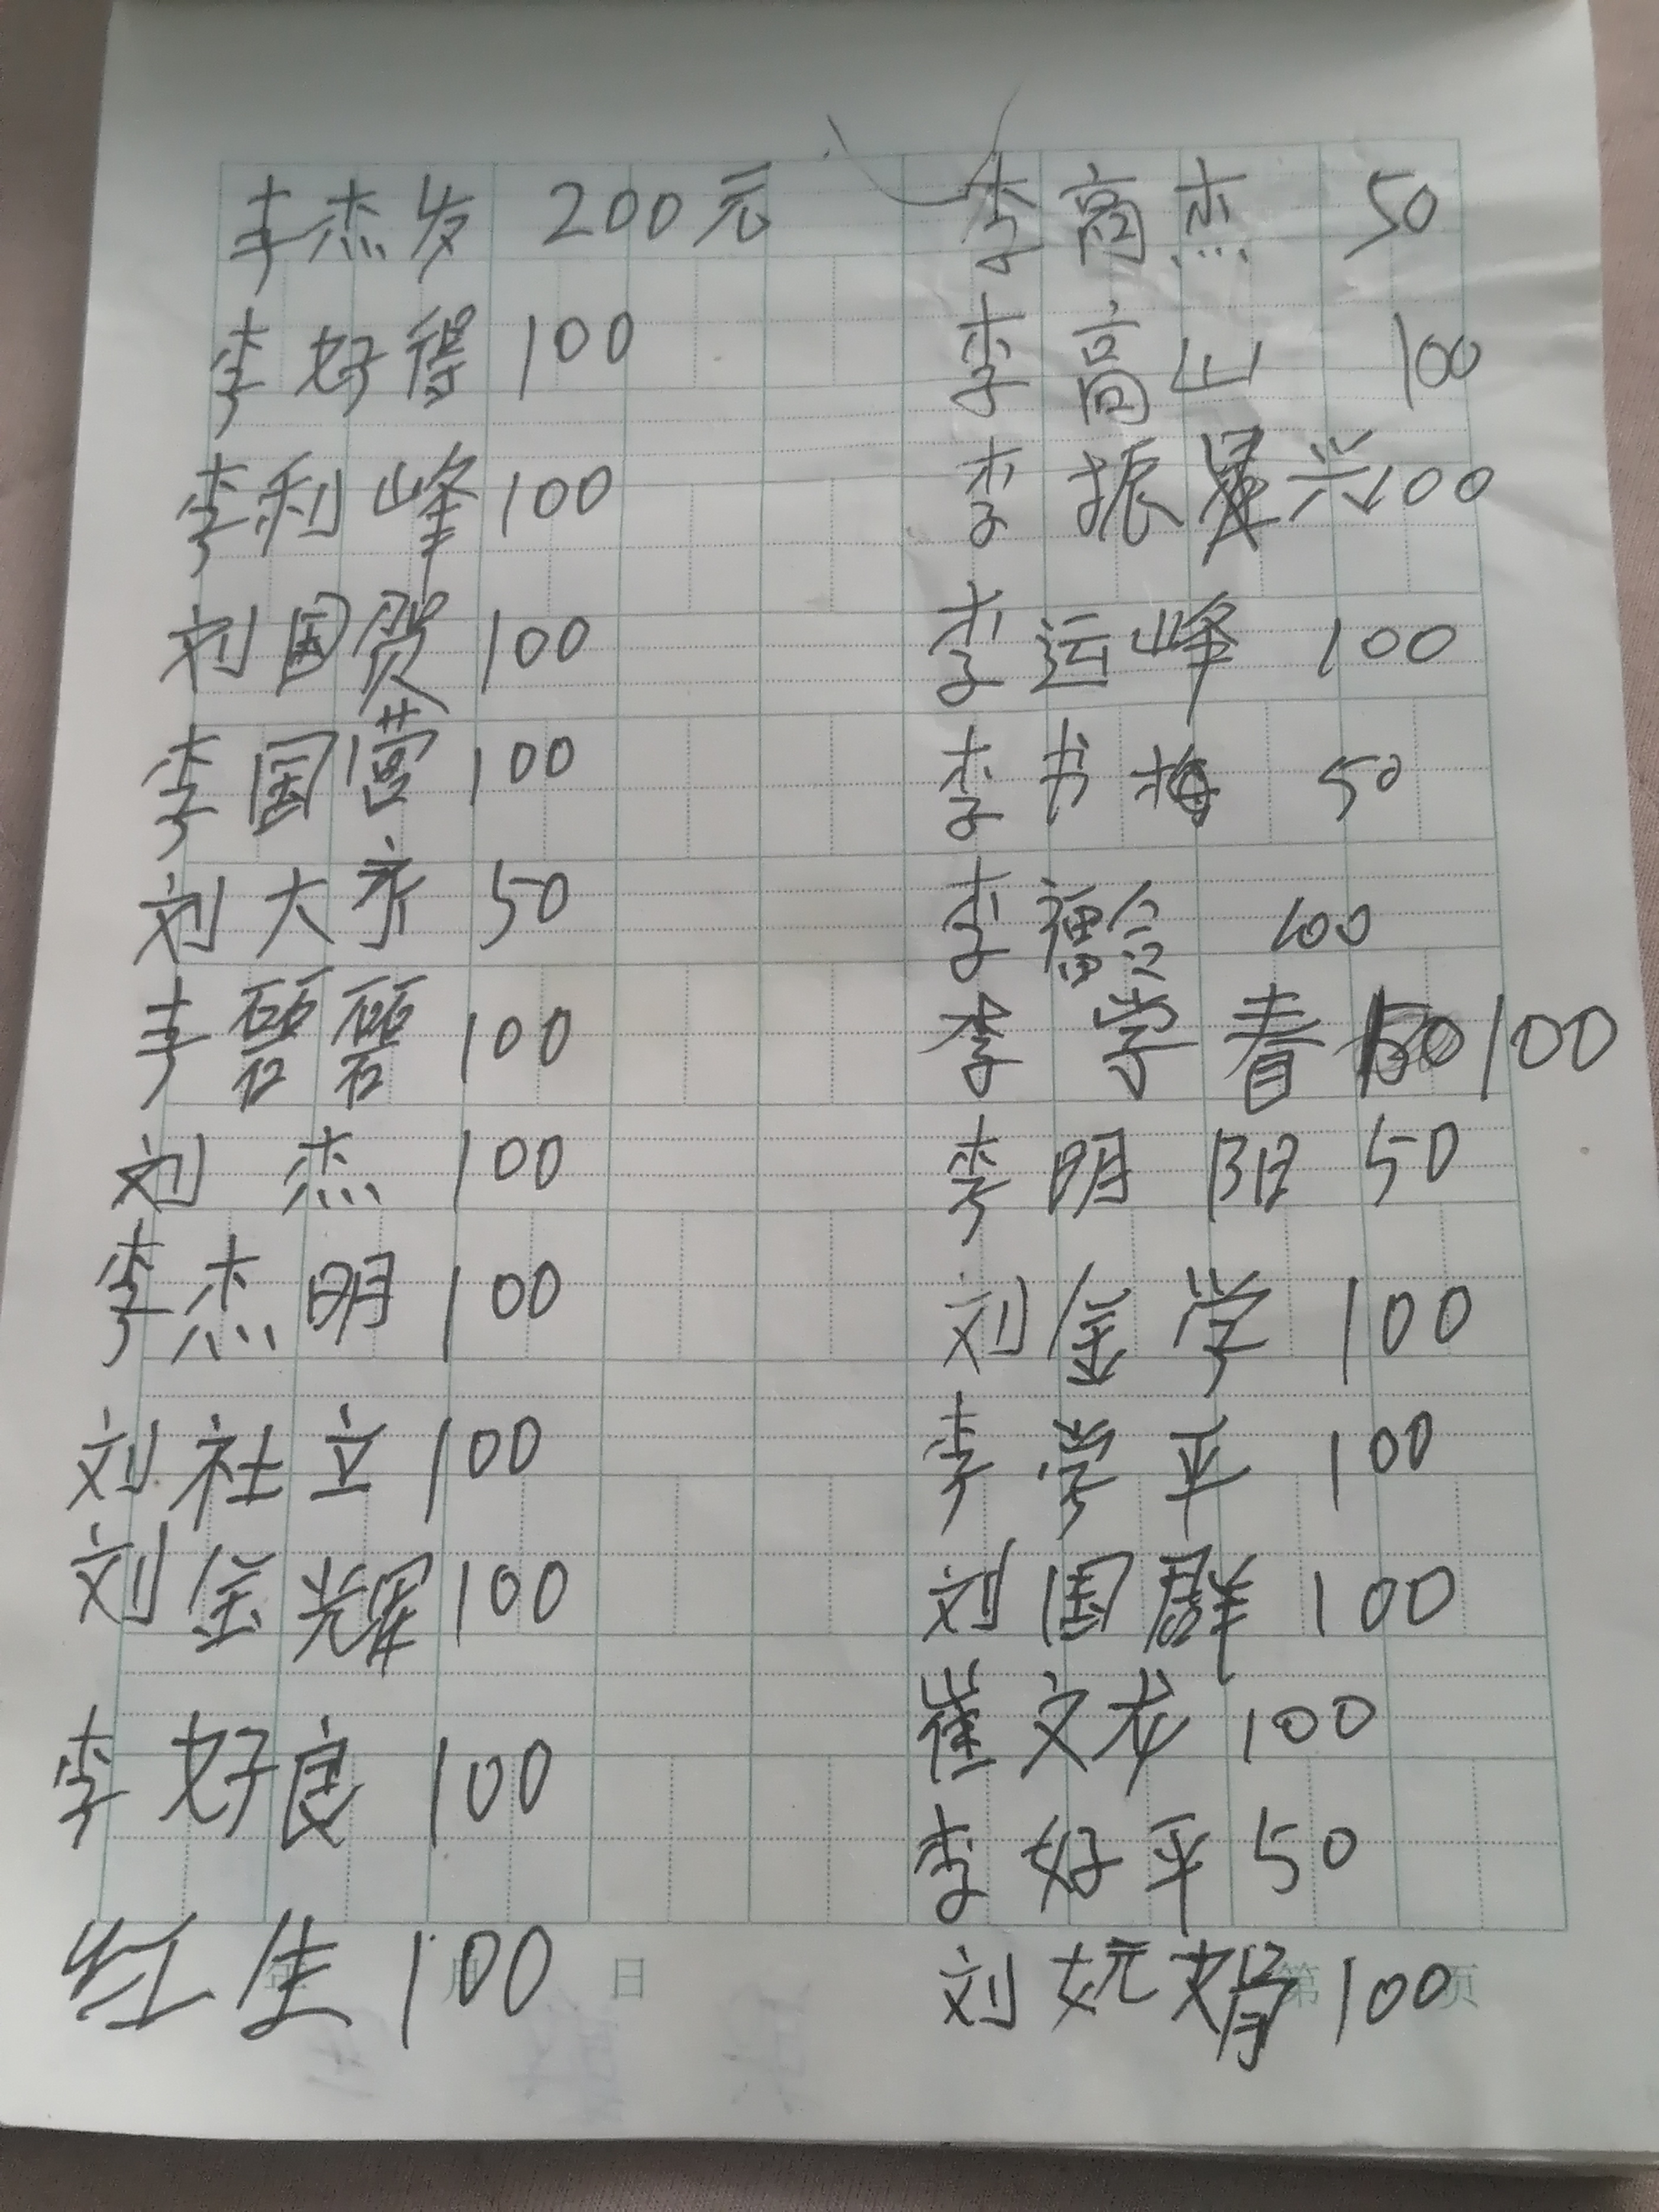 李杰发 200元
李好得 100
李利峰 100
刘国贺 100
李国营 100
刘大齐 50
李 100
刘杰 100
李杰明 100
刘社立 100
刘金辉 100
李好良 100
红生 100
李高杰 50
李高山 100
李振兴 100
李运峰 100
李书梅 50
李 100
李学春 100
李明阳 50
刘金学 100
李学平 100
刘国群 100
崔文龙 100
李好平 50
刘妧娟 100
日
第 页